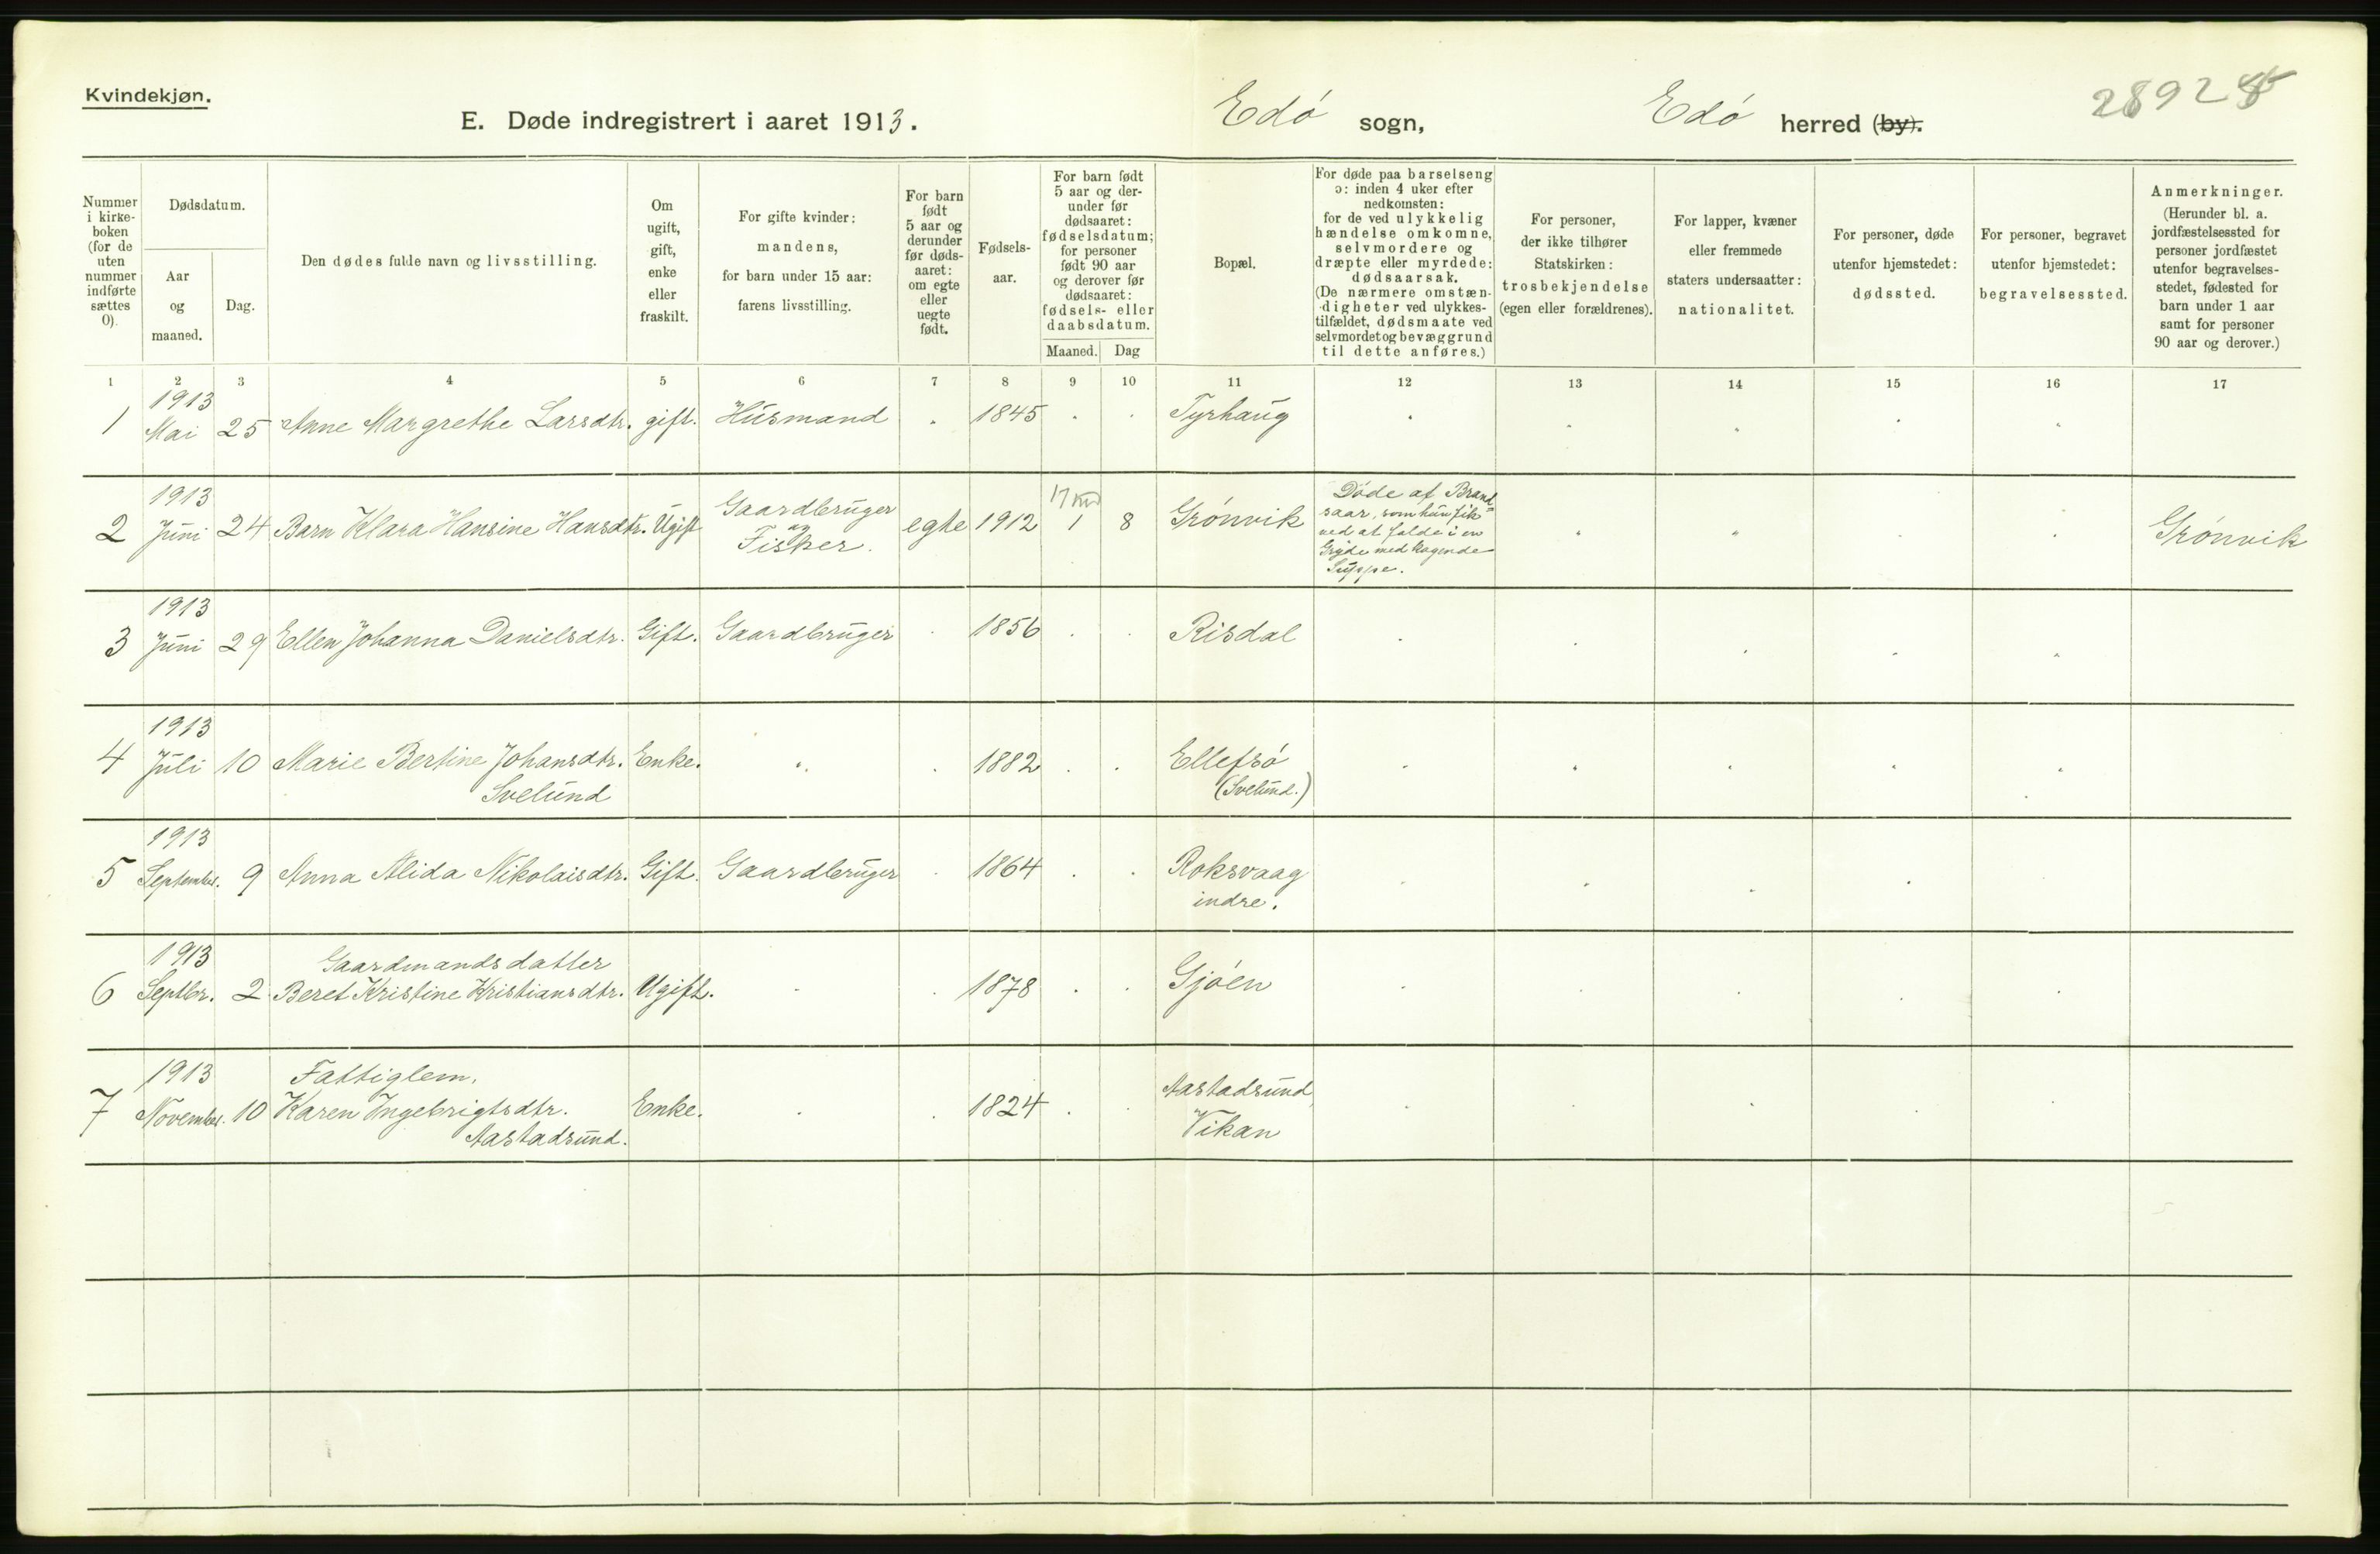 Kvindekjøn.
E. Døde indregistrert i aaret 1913.
Edø sogn,
Edø herred (by).
Nummer i kirke-boken (for de uten nummer indførte sættes 0).
Dødsdatum.
Aar og maaned.
Dag.
Den dødes fulde navn og livsstilling.
Om ugift, gift, enke eller fraskilt.
For gifte kvinder: mandens, for barn under 15 aar: farens livsstilling.
For barn født 5 aar og derunder før døds-aaret: om egte eller uegte født.
Fødsels-aar.
For barn født 5 aar og der-under før dødsaaret: fødselsdatum; for personer født 90 aar og derover før dødsaaret: fødsels- eller daabsdatum.
Maaned. Dag
Bopæl.
For døde paa barselseng ɔ: inden 4 uker efter nedkomsten: for de ved ulykkelig hændelse omkomne, selvmordere og dræpte eller myrdede: dødsaarsak. (De nærmere omstæn-digheter ved ulykkes-tilfældet, dødsmaate ved selvmordet og bevæggrund til dette anføres.)
For personer, der ikke tilhører Statskirken: trosbekjendelse (egen eller forældrenes).
For lapper, kvæner eller fremmede staters undersaatter: nationalitet.
For personer, døde utenfor hjemstedet: dødssted.
For personer, begravet utenfor hjemstedet: begravelsessted.
Anmerkninger. (Herunder bl. a. jordfæstelsessted for personer jordfæstet utenfor begravelses-stedet, fødested for barn under 1 aar samt for personer 90 aar og derover.)
1 2 3 4 5 6 7 8 9 10 11 12 13 14 15 16 17
1 1913 Mai 25 Anne Margrethe Larsdtr. gift. Husmand 1845 Tyrhaug
2 1913 Juni 24 Barn Klara Hansine Hansdtr. Ugift Gaardbruger og Fisker. egte 1912 1 8 Grønvik Døde af Brand=saar, som hun fik ved at falde i en Gryde med kogende Suppe. Grønvik
3 1913 Juni 29 Ellen Johanna Danielsdtr. Gift. Gaardbruger 1856 Risdal
4 1913 Juli 10 Marie Bertine Johansdtr. Svelund Enke. " 1882 Ellefsø (Svelund.)
5 1913 September. 9 Anna Alida Nikolaisdtr. Gift. Gaardbruger 1864 Roksvaag indre.
6 1913 Septbr. 2 Gaardmandsdatter Beret Kristine Kristiansdtr. Ugift. 1878 Gjøen
7 1913 November. 10 Fattiglem. Karen Ingebrigtsdtr. Aastadsund. Enke. 1824 Aastadsund, Vikan